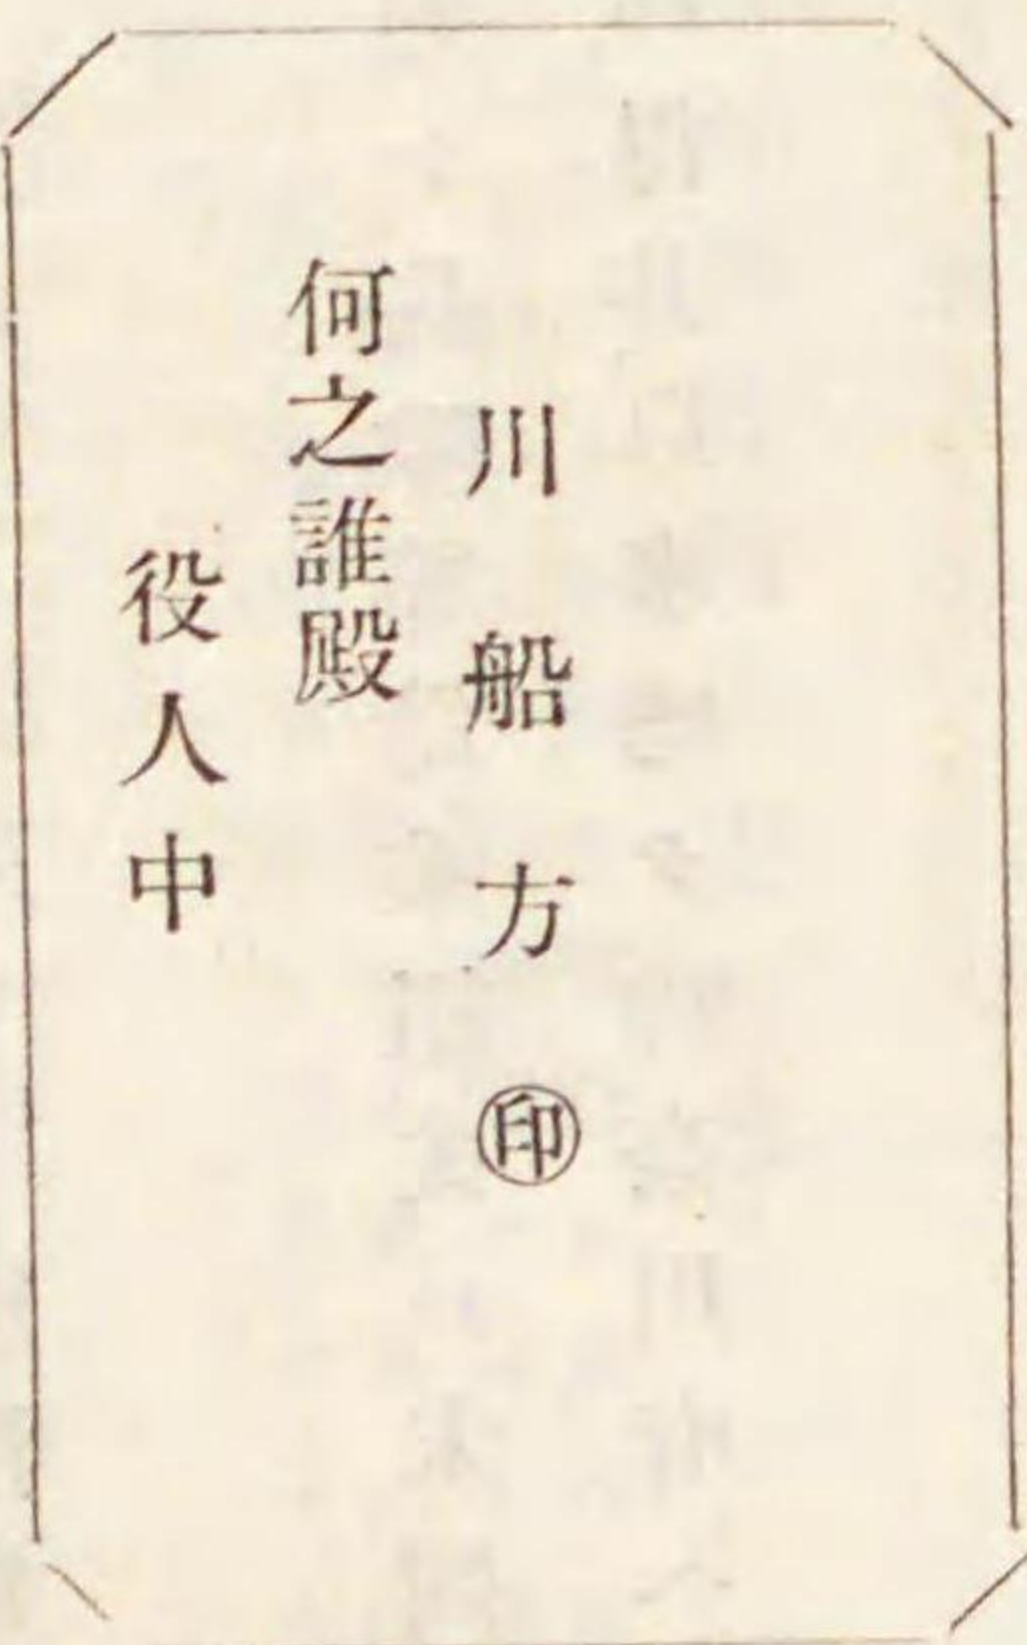 川船方㊞
何之誰殿
役人中